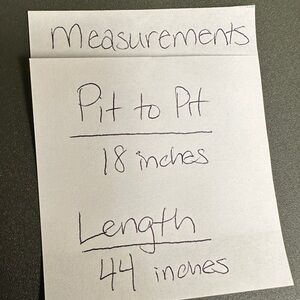 Measurements
Pit to Pit
18 inches
Length
44 inches